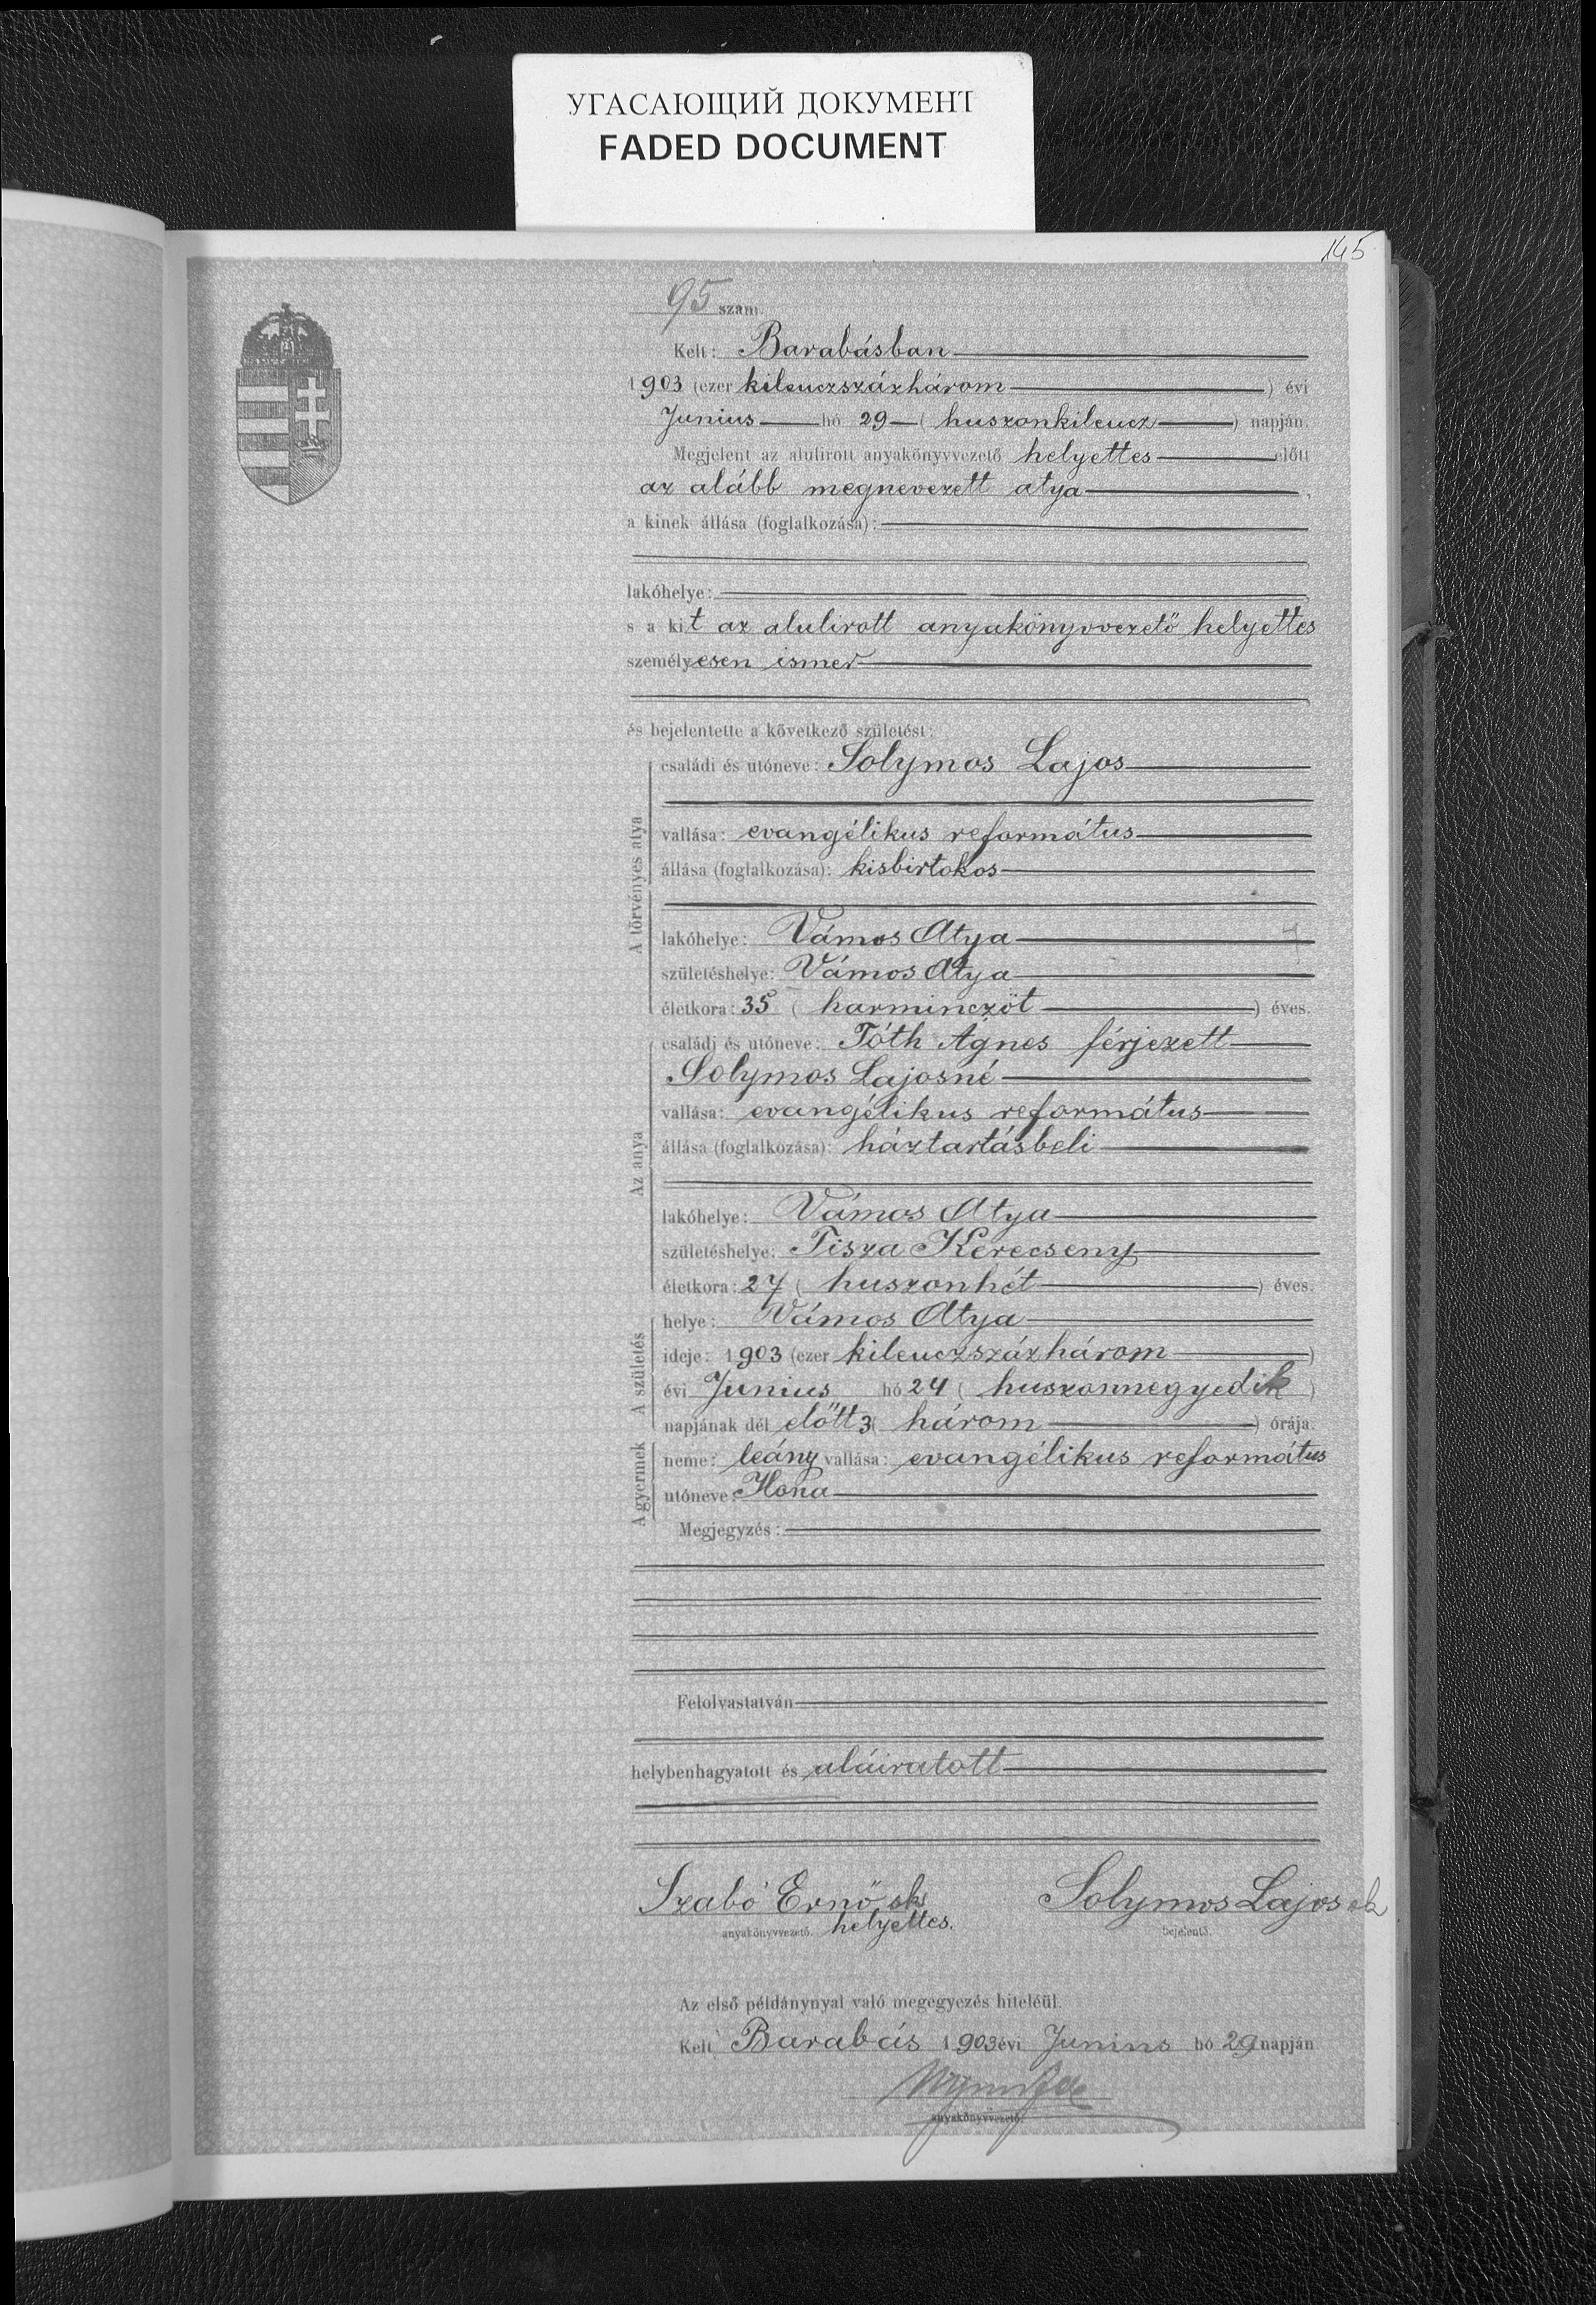 УГАСАЮЩИЙ ДОКУМЕНТ
FADED DOCUMENT
145
95 szám.
Kelt: Barabásban
1903 (ezer kilenczszázhárom) évi
Junius hó 29 (huszonkilencz) napján.
Megjelent az alulirott anyakönyvvezető helyettes előtt
az alább megnevezett atya,
a kinek állása (foglalkozása):
lakóhelye:
s a kit az alulirott anyakönyvvezető helyettes
személyesen ismer
és bejelentette a következő születést:
A törvényes atya
családi és utóneve: Solymos Lajos
vallása: evangélikus református
állása (foglalkozása): kisbirtokos
lakóhelye: Vámos Atya
születéshelye: Vámos Atya
életkora: 35 (harminczöt) éves.
Az anya
családi és utóneve: Tóth Ágnes férjezett
Solymos Lajosné
vallása: evangélikus református
állása (foglalkozása): háztartásbeli
lakóhelye: Vámos Atya
születéshelye: Tisza Kerecseny
életkora: 27 (huszonhét) éves.
A születés
helye: Vámos Atya
ideje: 1903 (ezer kilenczszázhárom)
évi Junius hó 24 (huszonnegyedik)
napjának dél előtt 3 (három) órája.
A gyermek
neme: leány vallása: evangélikus református
utóneve: Ilona
Megjegyzés:
Felolvastatván
helybenhagyatott és aláiratott
Szabó Ernő sk Solymos Lajos sk
anyakönyvvezető. helyettes. bejelentő.
Az első példánynyal való megegyezés hiteléül.
Kelt Barabás 1903 évi Junius hó 29 napján
anyakönyvvezető.